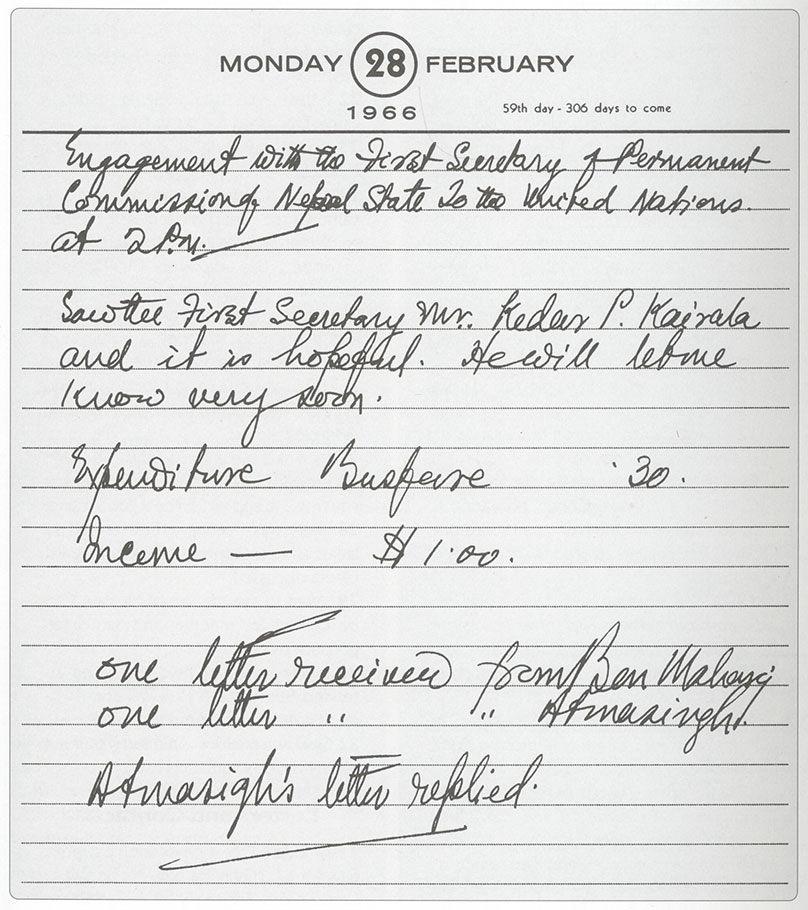 MONDAY 28 FEBRUARY
1966 59th day - 306 days to come
Engagement with the First Secretary of Permanent
Commission of Nepal State To the United Nations.
at 2 P.m.
Saw the First Secretary Mr. Kedar P. Kairala
and it is hopeful. He will let me
know very soon.
Expenditure Busfare '30.
Income — $1.00.
one letter received from Bon Maharaj
one letter " " Atmasingh.
Atmasigh's letter replied.